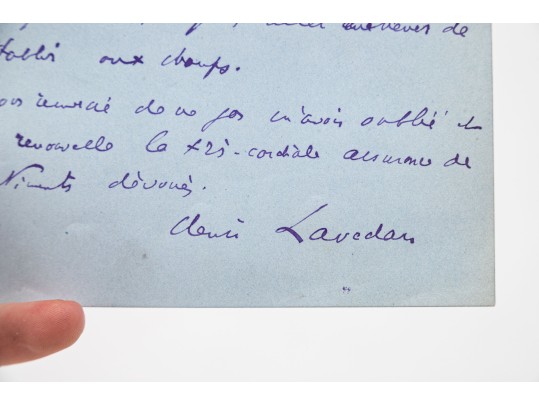 de
établi aux champs.
vous remercie de ne pas m'avoir oublié et
renouvelle la très-cordiale assurance de
dévoués.
Henri Lavedan